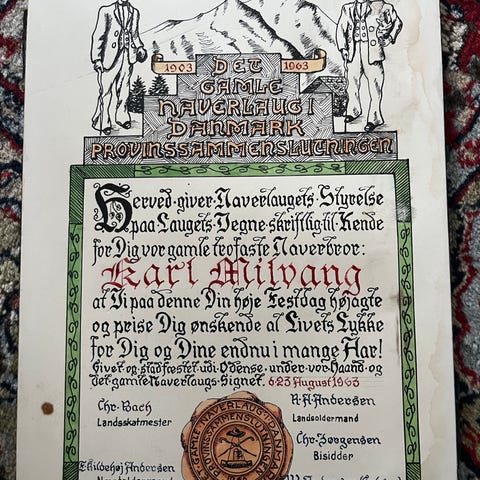 1903 1963
DET
GAMLE
NAVERLAUG I
DANMARK
PROVINSSAMMENSLUTNINGEN
Herved giver Naverlaugets Styrelse
paa Laugets Vegne skriftlig til Kende
for Dig vor gamle trofaste Naverbror:
Karl Milvang
at Vi paa denne Din høje Festdag højagte
og prise Dig ønskende al Livets Lykke
for Dig og Dine endnu i mange Aar!
Givet og stadfæstet udi Odense under vor Haand og
det gamle Naverlaugs Signet. d.23 August 1963
Chr. Bach
Landsskatmester
A. Andersen
Landsoldermand
Chr. Jørgensen
Bisidder
Andersen
DET GAMLE NAVERLAUG I DANMARK
PROVINSSAMMENSLUTNINGEN